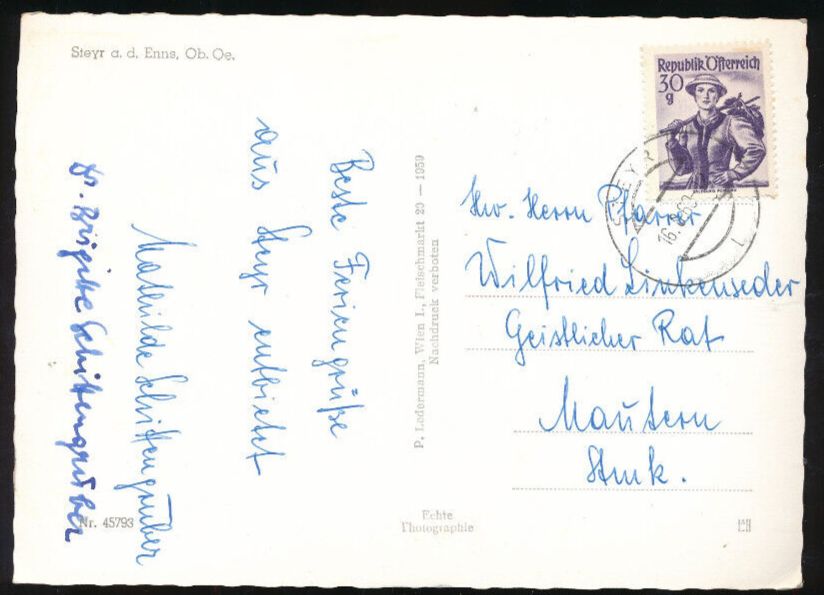 Steyr a. d. Enns, Ob. Oe.
Beste Feriengrüße
aus Steyr entbietet
Mathilde Schittengruber
Dr. Brigitte Schittengruber
Nr. 45793
P. Ledermann, Wien I., Fleischmarkt 20 — 1959
Nachdruck verboten
Echte
Photographie
Republik Österreich
30
g
STEYR
1
Hw. Herrn Pfarrer
Wilfried Linkenseder
Geistlicher Rat
Mautern
Stmk.